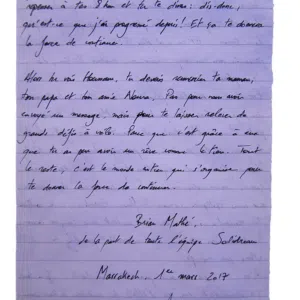 repenser à ton 8 km et tu te diras : dis-donc,
qu'est-ce que j'ai progressé depuis ! Et ça te donnera
la force de continuer.
Alors tu vois, tu devais remercier ta maman,
ton papa et ton amie. Pas pour nous avoir
envoyé un message, mais pour te laisser relever de
grands défis à vélo. Parce que c'est grâce à eux
que tu as pu avoir un rêve comme le tien. Tout
le reste, c'est le monde entier qui s'organise pour
te donner la force de continuer.
Brian Mathé
de la part de toute l'équipe
Marrakech, 1er mars 2017